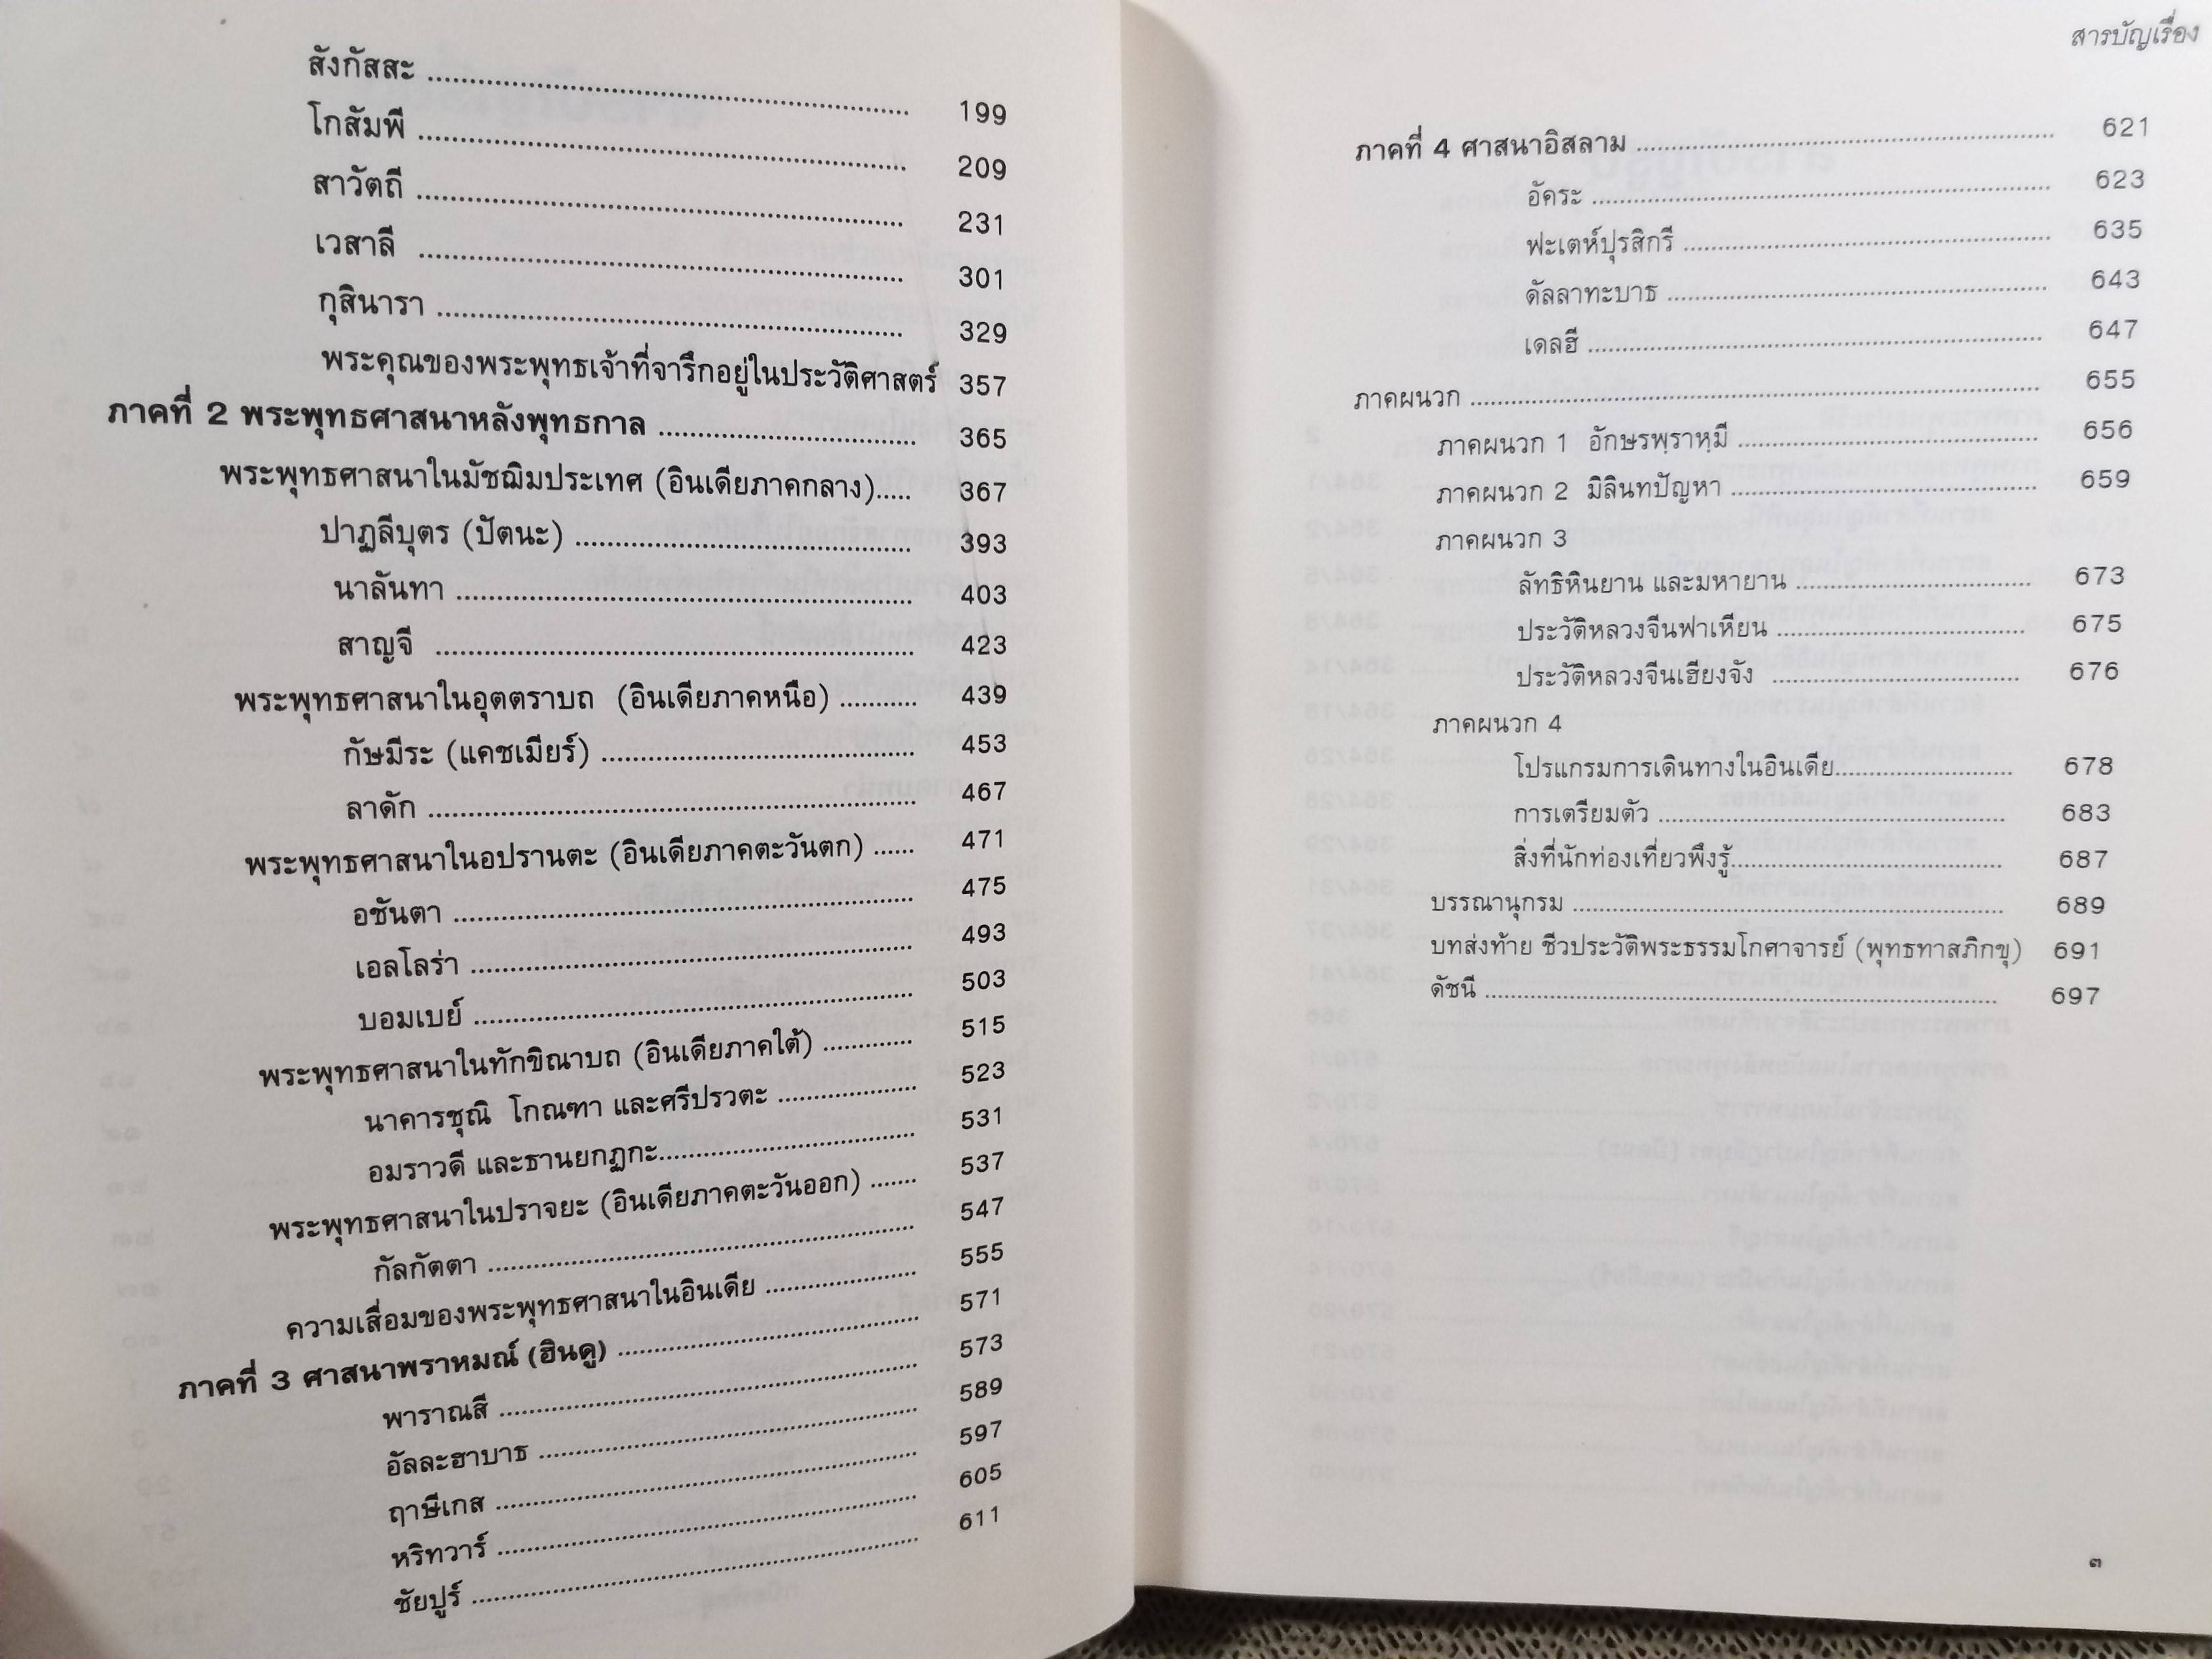 สังกัสสะ ........................................ 199
โกสัมพี ........................................ 209
สาวัตถี ........................................ 231
เวสาลี ........................................ 301
กุสินารา ........................................ 329
พระคุณของพระพุทธเจ้าที่จารึกอยู่ในประวัติศาสตร์ 357
ภาคที่ 2 พระพุทธศาสนาหลังพุทธกาล ........................................ 365
พระพุทธศาสนาในมัชฌิมประเทศ (อินเดียภาคกลาง)..... 367
ปาฏลีบุตร (ปัตนะ) ........................................ 393
นาลันทา ........................................ 403
สาญจี ........................................ 423
พระพุทธศาสนาในอุตตราบถ (อินเดียภาคหนือ) ........... 439
กัษมีระ (แคชเมียร์) ........................................ 453
ลาดัก ........................................ 467
พระพุทธศาสนาในอปรานตะ (อินเดียภาคตะวันตก) ...... 471
อชันตา ........................................ 475
เอลโลร่า ........................................ 493
บอมเบย์ ........................................ 503
พระพุทธศาสนาในทักขิณาบถ (อินเดียภาคใต้) ............ 515
นาคารชุณิ โกณฑา และศรีปรวตะ .................. 523
อมราวดี และธานยกฏกะ................................. 531
พระพุทธศาสนาในปราจยะ (อินเดียภาคตะวันออก) ...... 537
กัลกัตตา ........................................ 547
ความเสื่อมของพระพุทธศาสนาในอินเดีย .................... 555
ภาคที่ 3 ศาสนาพราหมณ์ (ฮินดู) ........................................ 571
พาราณสี ........................................ 573
อัลละฮาบาธ ........................................ 589
ฤาษีเกส ........................................ 597
หริทวาร์ ........................................ 605
ชัยปูร์ ........................................ 611
สารบัญเรื่อง
ภาคที่ 4 ศาสนาอิสลาม ........................................ 621
อัคระ ........................................ 623
ฟะเตห์ปุรสิกรี ........................................ 635
ดัลลาทะบาธ ........................................ 643
เดลฮี ........................................ 647
ภาคผนวก ........................................ 655
ภาคผนวก 1 อักษรพฺราหฺมี ........................................ 656
ภาคผนวก 2 มิลินทปัญหา ........................................ 659
ภาคผนวก 3
ลัทธิหินยาน และมหายาน ........................................ 673
ประวัติหลวงจีนฟาเหียน ........................................ 675
ประวัติหลวงจีนเฮียงจัง ........................................ 676
ภาคผนวก 4
โปรแกรมการเดินทางในอินเดีย............................ 678
การเตรียมตัว ........................................ 683
สิ่งที่นักท่องเที่ยวพึงรู้........................................ 687
บรรณานุกรม ........................................ 689
บทส่งท้าย ชีวประวัติพระธรรมโกศาจารย์ (พุทธทาสภิกขุ) 691
ดัชนี ........................................ 697
๓